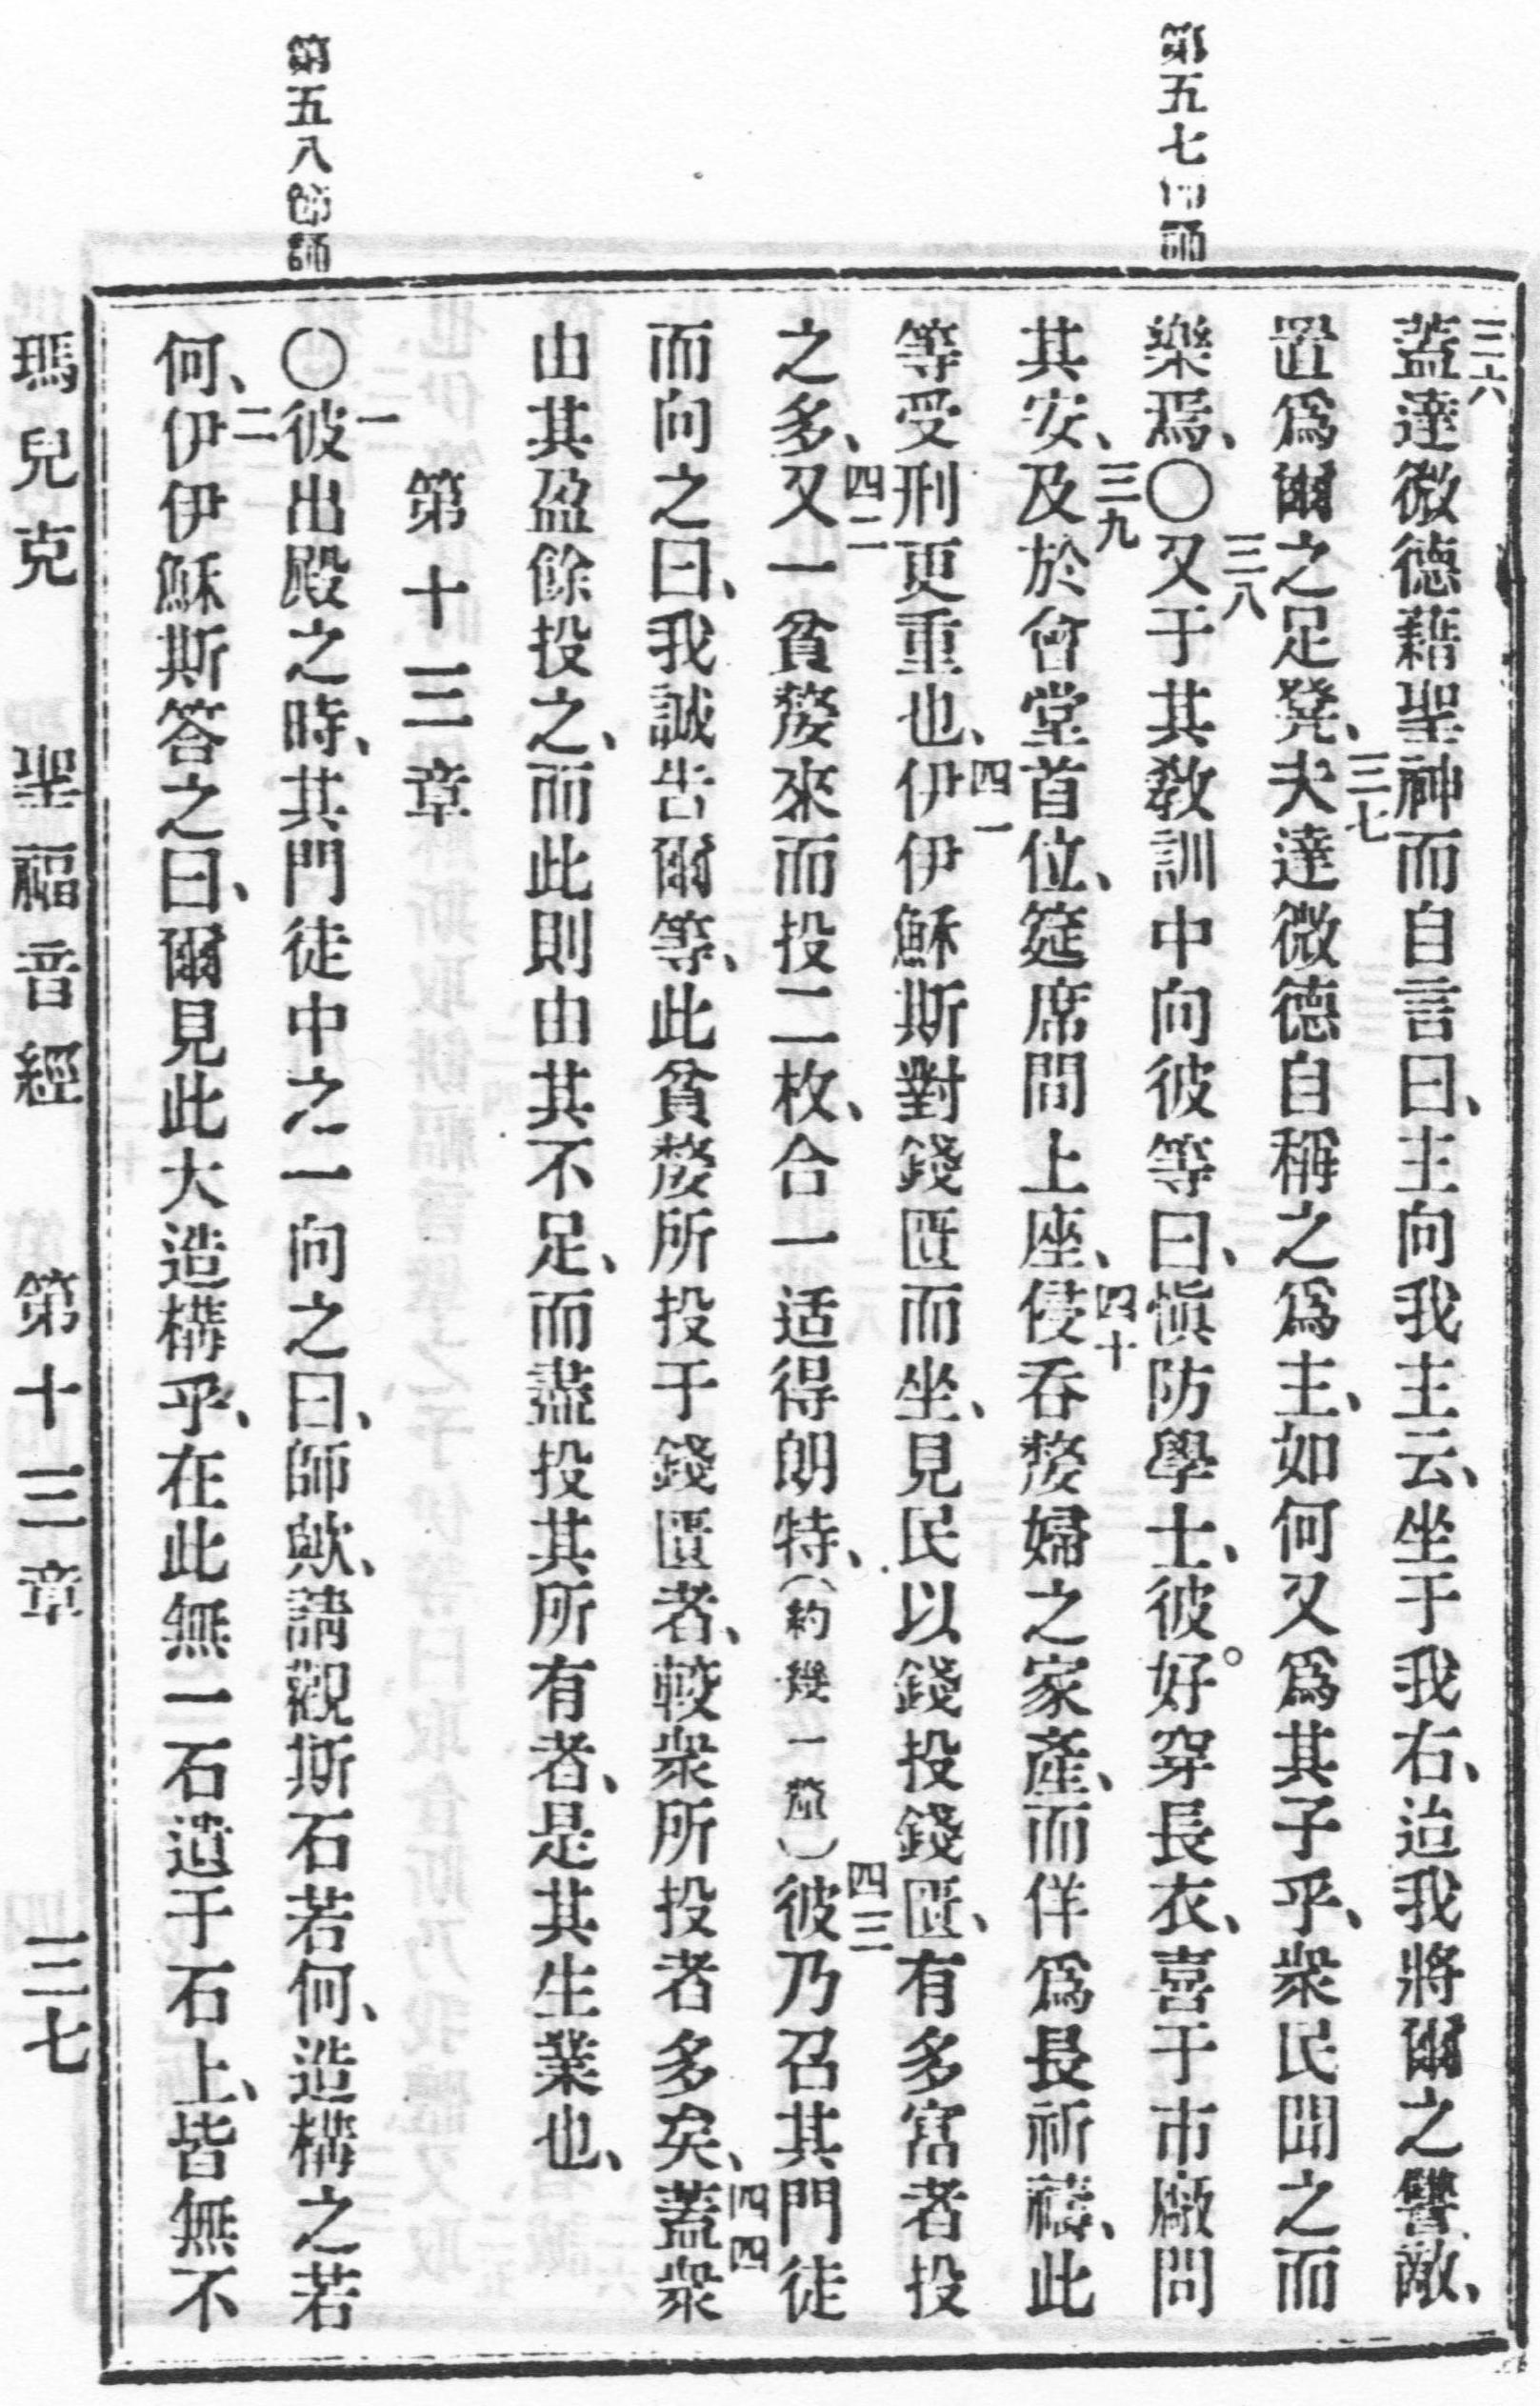 第五七節誦
第五八節誦
三六
蓋達微德藉聖神而自言曰、主向我主云、坐于我右、迨我將爾之讐敵、
置爲爾之足凳、三七夫達微德自稱之爲主、如何又爲其子乎、衆民聞之而
樂焉、〇三八又于其敎訓中向彼等曰、愼防學士、彼。好穿長衣、喜于市廠問
其安、三九及於會堂首位、筵席間上座、四十侵吞嫠婦之家產、而佯爲長祈禱、此
等受刑更重也、四一伊伊穌斯對錢匣而坐、見民以錢投錢匣、有多富者投
之多、四二又一貧嫠來而投二枚、合一适得朗特、（約幾一釐）四三彼乃召其門徒
而向之曰、我誠吿爾等、此貧嫠所投于錢匱者、較衆所投者多矣、四四蓋衆
由其盈餘投之、而此則由其不足、而盡投其所有者、是其生業也、
第十三章
〇一彼出殿之時、其門徒中之一向之曰、師歟、請觀斯石若何、造構之若
何、二伊伊穌斯答之曰、爾見此大造構乎、在此無一石遺于石上、皆無不
瑪兒克 聖福音經 第十三章 三七